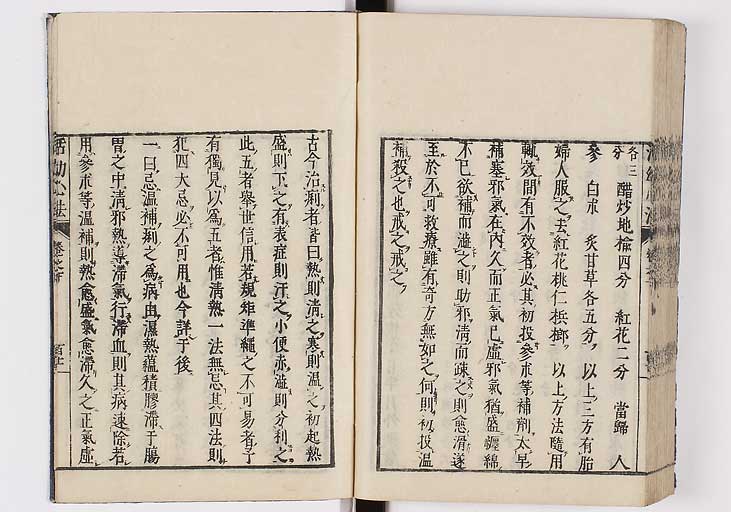 各三分 醋炒地榆四分 紅花二分 當歸 人
參 白朮 炙甘草各五分 以上三方有胎
婦人服之去紅花桃仁梹榔 以上方法隨用
輒效間有不效者必其初投參朮等補劑太早
補塞邪氣在內久而正氣已虛邪氣猶盛纒綿
不已欲補而澁之則助邪淸而疎之則愈滑遂
至於不可救療雖有奇方無如之何則初投溫
補殺之也戒之戒之
古今治痢者皆曰熱則淸之寒則溫之初起熱
盛則下之有表症則汗之小便赤澁則分利之
此五者舉世信用若規矩準繩之不可易者予
有獨見以爲五者惟淸熱一法無忌其四法則
犯四大忌必不可用也今詳于後
一曰忌溫補痢之爲病由濕熱蘊積膠滯于腸
胃之中淸邪熱導滯氣行滯血則其病速除若
用參朮等溫補則熱愈盛氣愈滯久之正氣虛
活幼心法